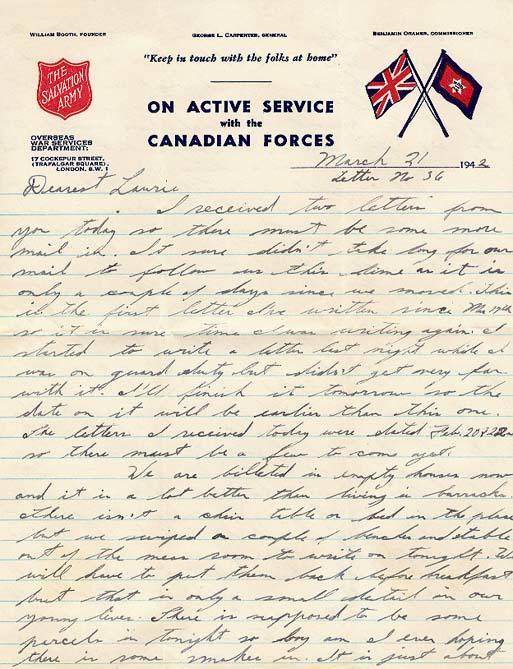 William Booth, Founder
George L. Carpenter, General
Benjamin Orames, Commissioner
"Keep in touch with the folks at home"
THE SALVATION ARMY
ON ACTIVE SERVICE
with the
CANADIAN FORCES
OVERSEAS
WAR SERVICES
DEPARTMENT:
17 COCKSPUR STREET,
(TRAFALGAR SQUARE),
LONDON, S.W.1
March 21 1942
Letter No 36
Dearest Laurie
I received two letters from
you today so there must be some more
mail in. It sure didn't take long for our
mail to follow us this time as it is
only a couple of days since we moved. This
is the first letter I've written since Mar 17th
so it is sure time I was writing again. I
started to write a letter last night while I
was on guard duty but didn't get very far
with it. I'll finish it tomorrow so the
date on it will be earlier than this one.
The letters I received today were dated Feb. 20 & 22
so there must be a few to come yet.
We are billeted in empty houses now
and it is a lot better than living in barracks.
There isn't a chair table or bed in the place
but we swiped a couple of benches and a table
out of the mess room to write on tonight. We
will have to put them back before breakfast
but that is only a small detail in our
young lives. There is supposed to be some
parcels in tonight so boy am I ever hoping
there is some smokes in. It is just about